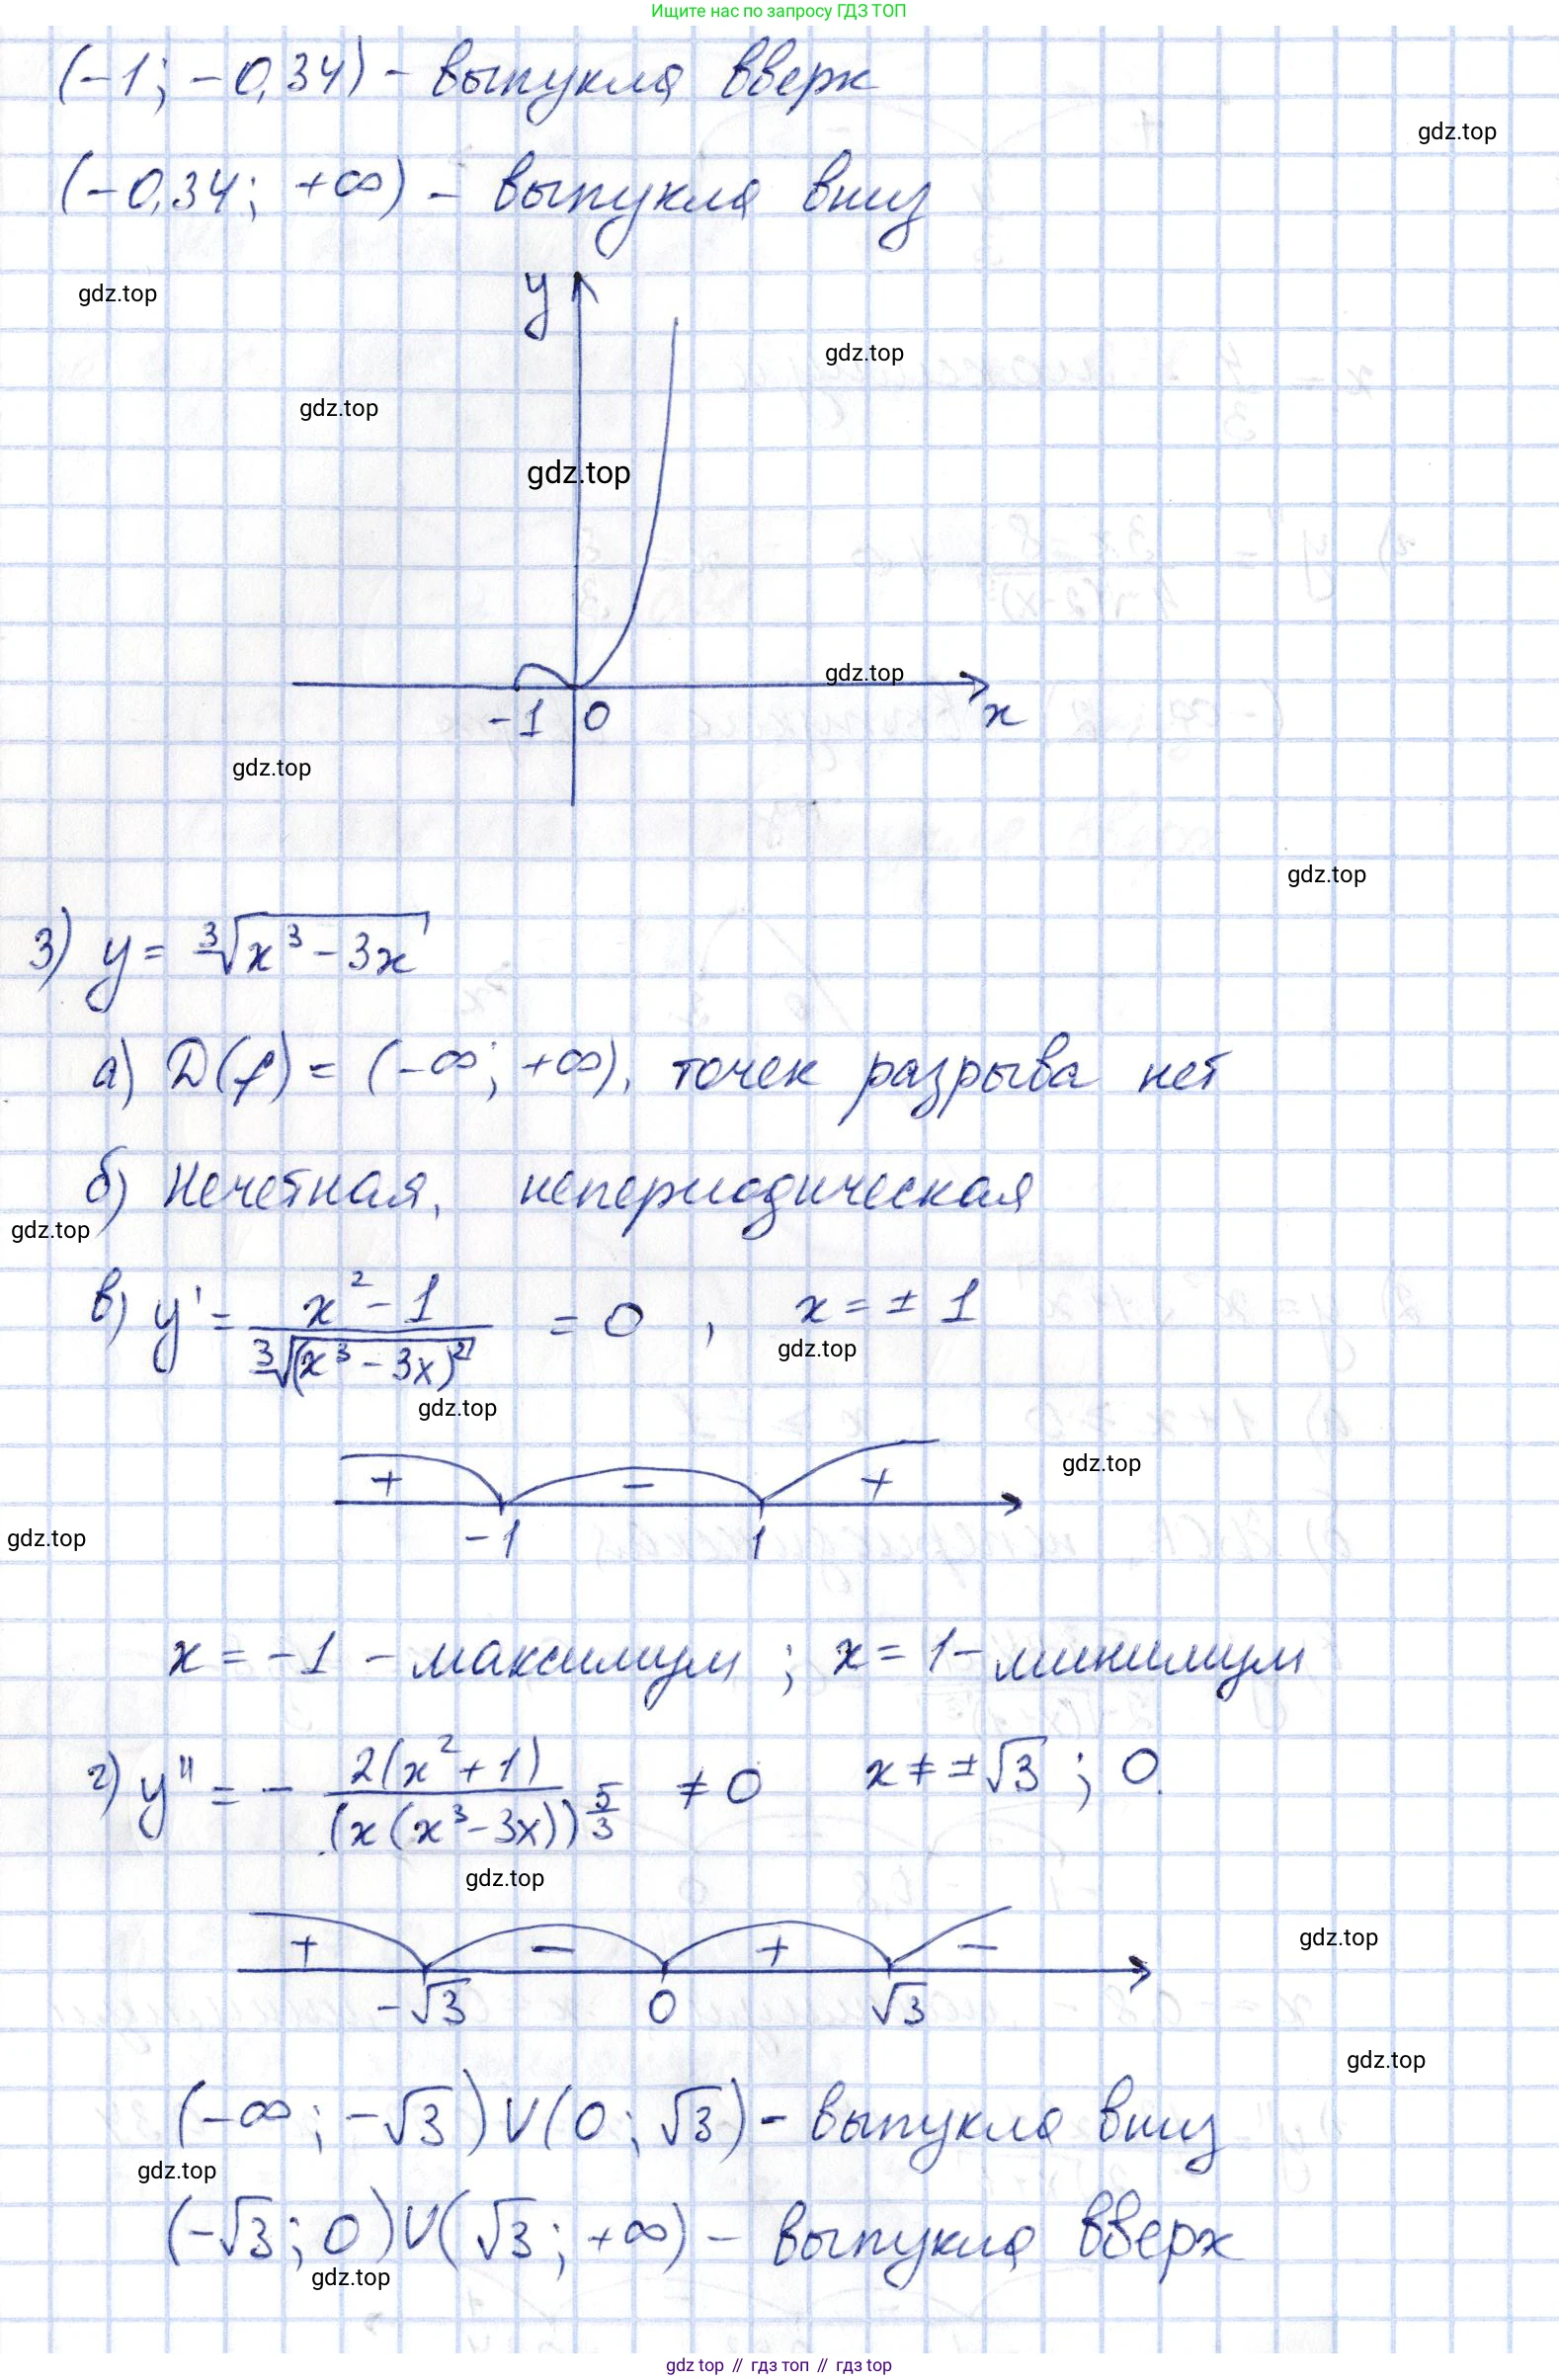 Ищите нас по запросу ГДЗ ТОП
(-1; -0,34) - выпукла вверх
gdz.top
(-0,34; +∞) - выпукла вниз
gdz.top
y
gdz.top
gdz.top
gdz.top
gdz.top
-1 0 x
gdz.top
gdz.top
3) y = ∛(x³ - 3x)
а) D(f) = (-∞; +∞), точек разрыва нет
б) Нечетная, непериодическая
gdz.top
в) y' = (x² - 1)/∛((x³ - 3x)²) = 0, x = ± 1
gdz.top
gdz.top
+ - +
gdz.top
-1 1
gdz.top
x = -1 - максимум; x = 1 - минимум
г) y'' = - 2(x² + 1)/(x(x³ - 3x))^(5/3) ≠ 0 x ≠ ±√3; 0.
gdz.top
+ - + -
gdz.top
-√3 0 √3
gdz.top
(-∞; -√3) ∪ (0; √3) - выпукла вниз
gdz.top
(-√3; 0) ∪ (√3; +∞) - выпукла вверх
gdz.top
gdz top // гдз топ // гдз top